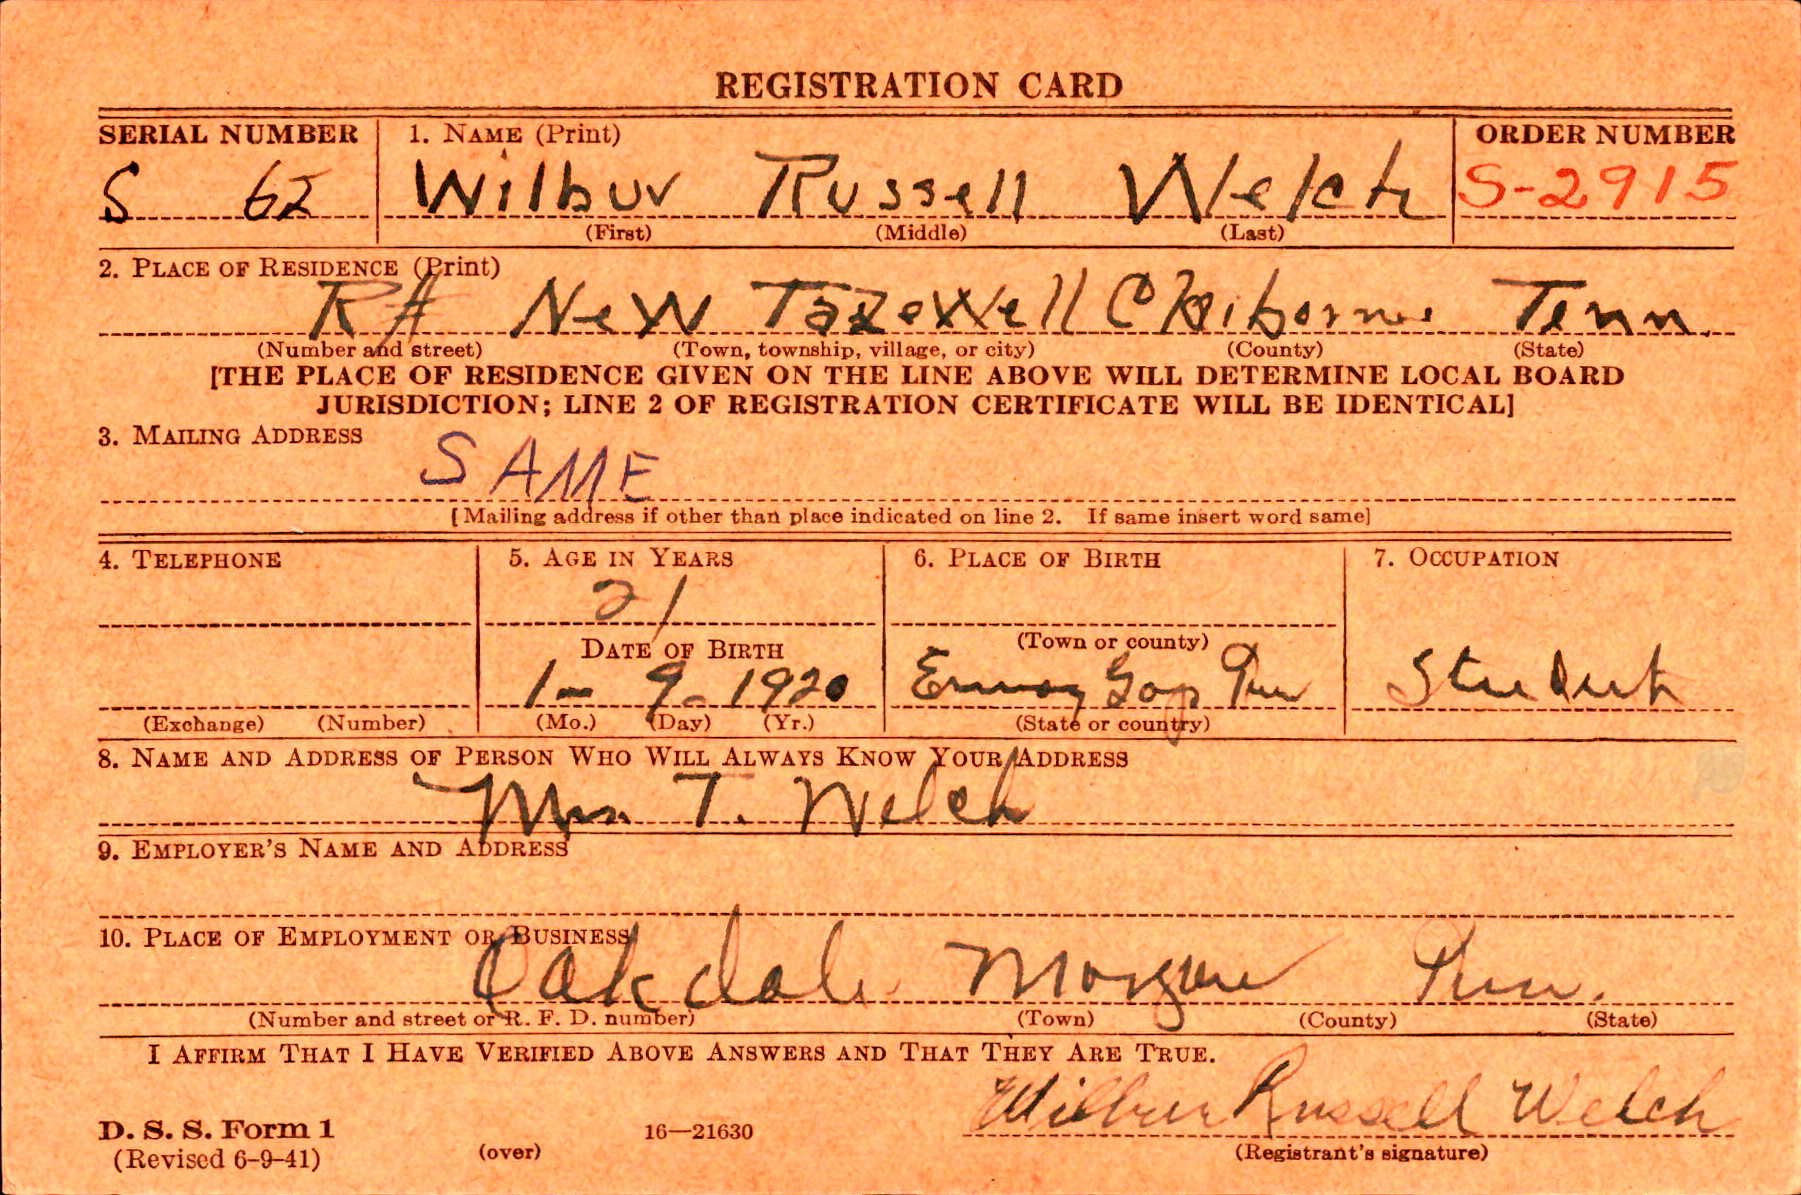 REGISTRATION CARD
SERIAL NUMBER 1. NAME (Print) ORDER NUMBER
S 62 Wilbur Russell Welch S-2915
(First) (Middle) (Last)
2. PLACE OF RESIDENCE (Print)
R# New Tazewell Claiborne Tenn.
(Number and street) (Town, township, village, or city) (County) (State)
[THE PLACE OF RESIDENCE GIVEN ON THE LINE ABOVE WILL DETERMINE LOCAL BOARD
JURISDICTION; LINE 2 OF REGISTRATION CERTIFICATE WILL BE IDENTICAL]
3. MAILING ADDRESS
SAME
[Mailing address if other than place indicated on line 2. If same insert word same]
4. TELEPHONE 5. AGE IN YEARS 6. PLACE OF BIRTH 7. OCCUPATION
21
DATE OF BIRTH (Town or county)
1-9-1920 Gap Tenn Student
(Exchange) (Number) (Mo.) (Day) (Yr.) (State or country)
8. NAME AND ADDRESS OF PERSON WHO WILL ALWAYS KNOW YOUR ADDRESS
Mrs. T. Welch
9. EMPLOYER'S NAME AND ADDRESS
10. PLACE OF EMPLOYMENT OR BUSINESS
Oakdale Morgan Tenn.
(Number and street or R. F. D. number) (Town) (County) (State)
I AFFIRM THAT I HAVE VERIFIED ABOVE ANSWERS AND THAT THEY ARE TRUE.
Wilbur Russell Welch
D. S. S. Form 1 16—21630
(Revised 6-9-41) (over) (Registrant's signature)